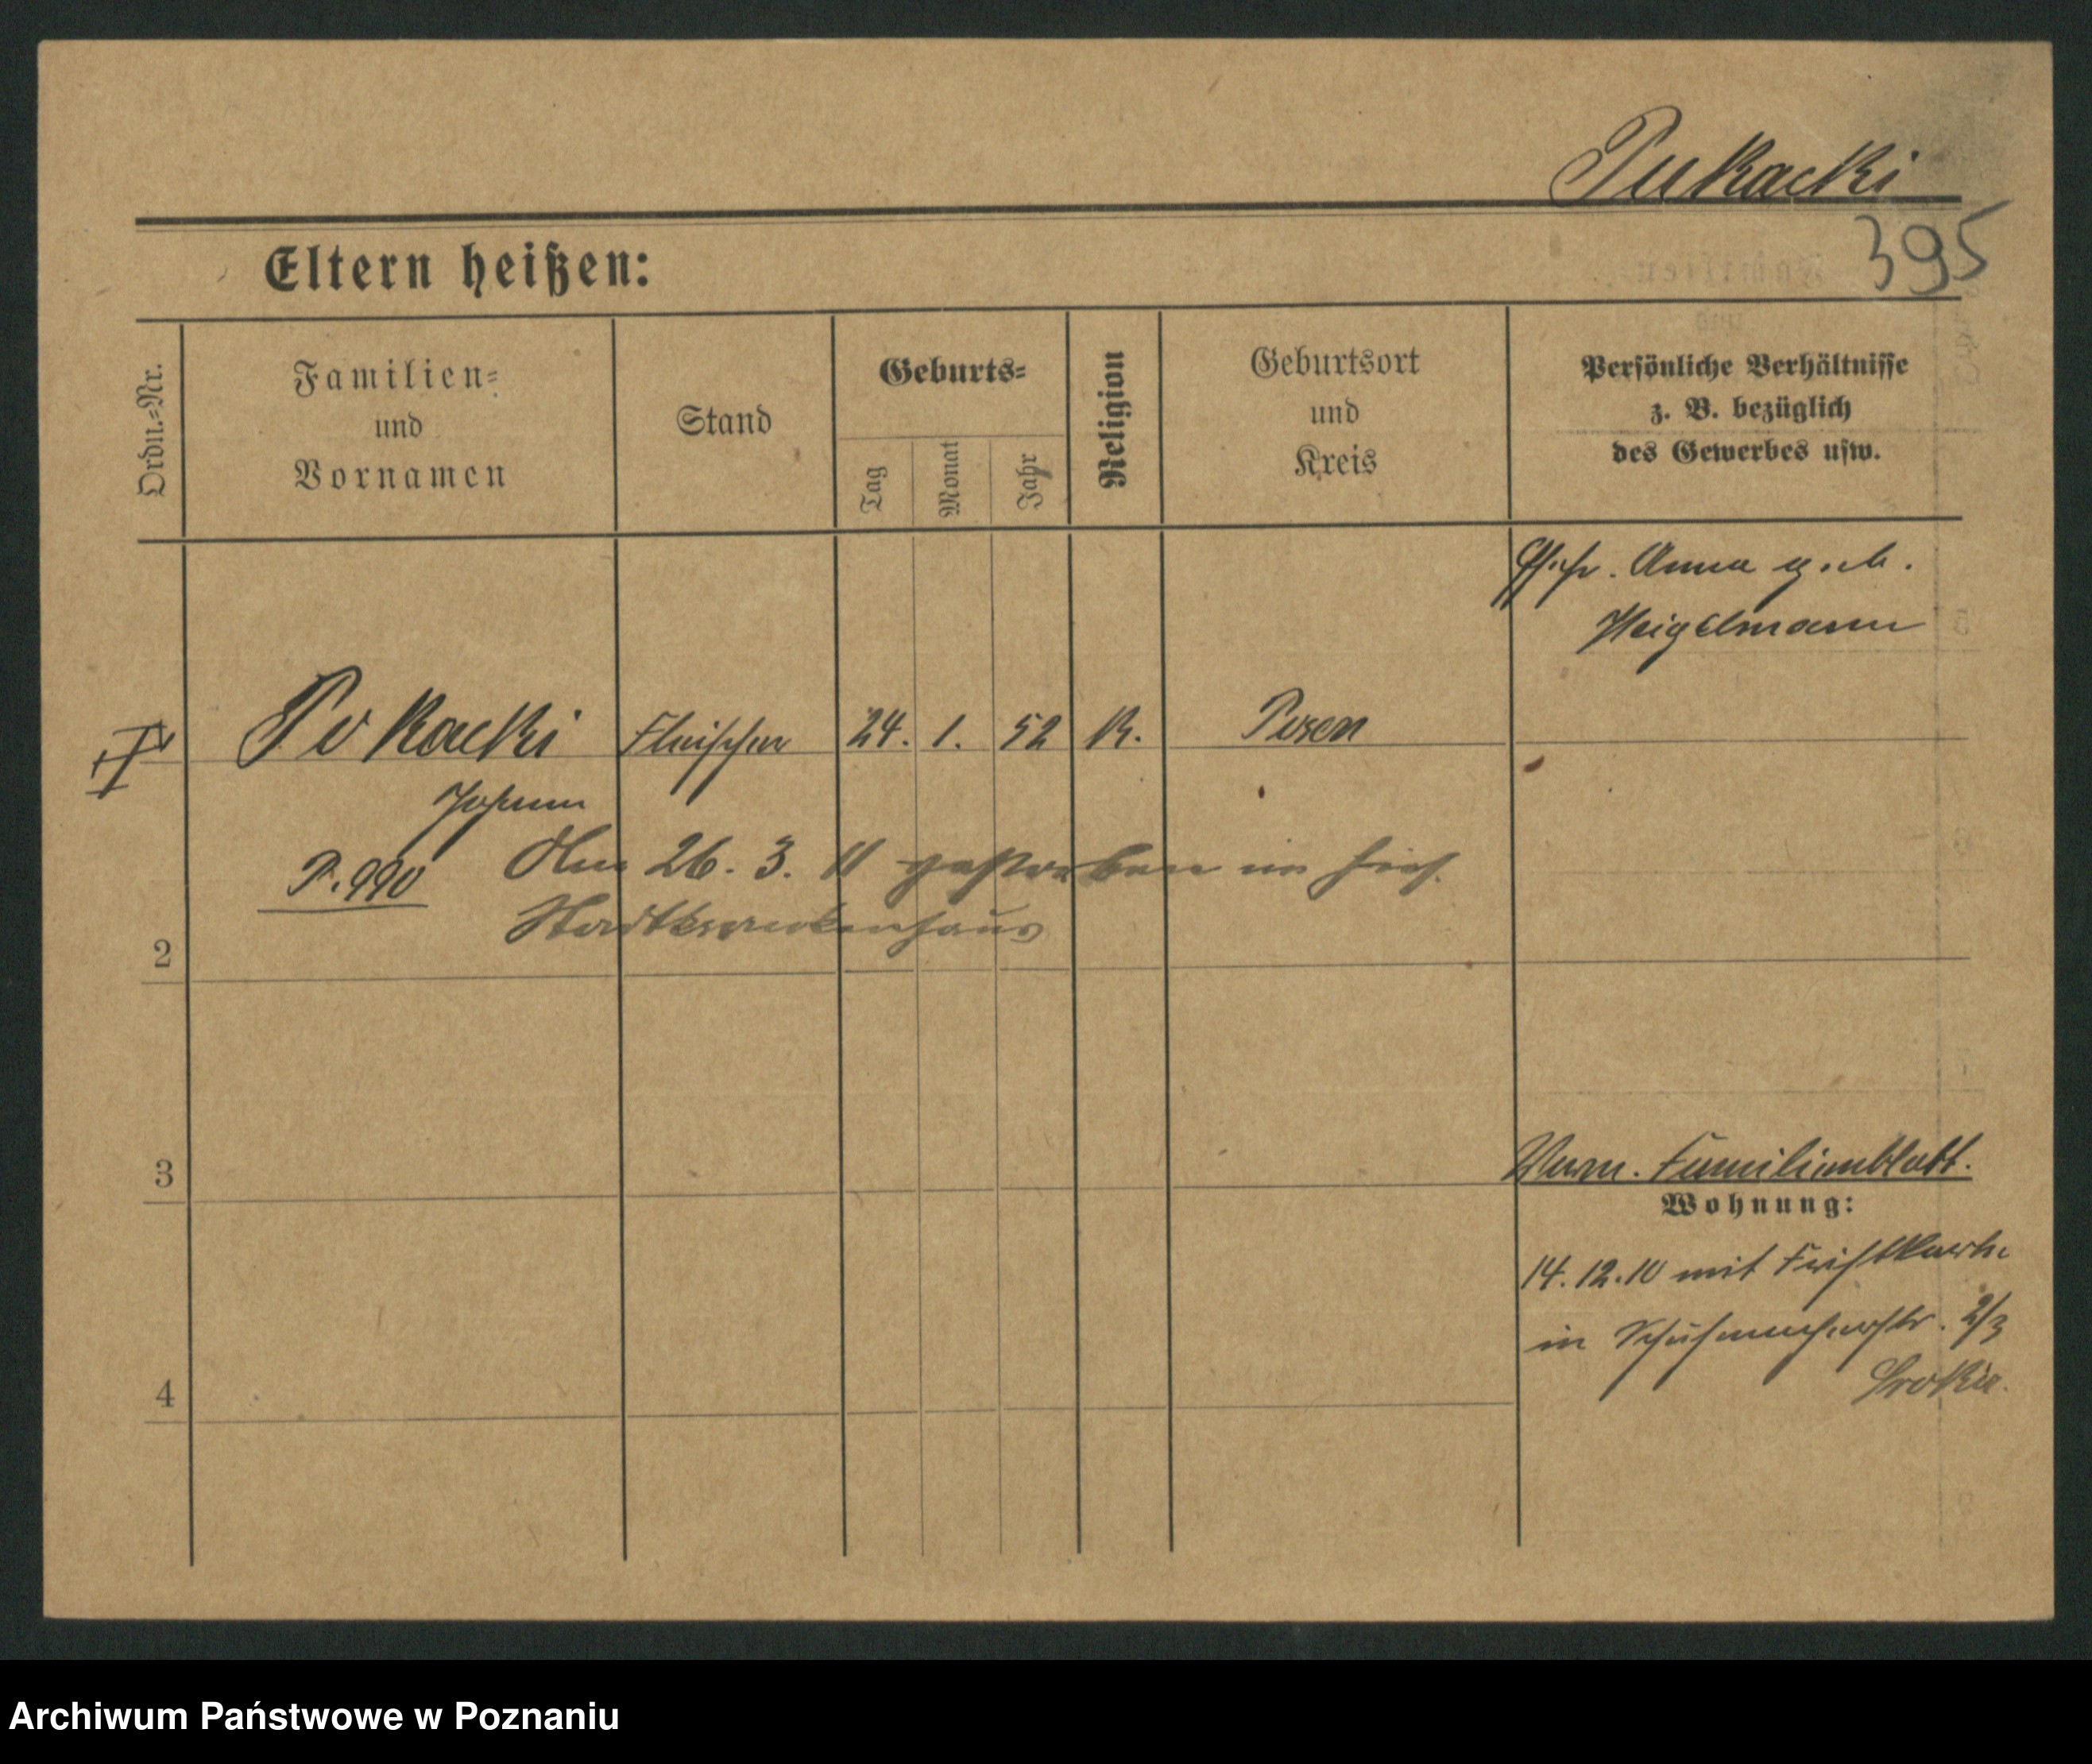 Pukacki
395
Eltern heißen:
Ordn.=Nr.
Familien=
und
Vornamen
Stand
Geburts=
Tag
Monat
Jahr
Religion
Geburtsort
und
Kreis
Persönliche Verhältnisse
z. B. bezüglich
des Gewerbes usw.
Anna geb.
Heigelmann
Pukacki Fleischer 24. 1. 52 K. Posen
Johann
P. 990
Am 26. 3. 11 gestorben im hies.
Stadtkrankenhaus
2
3
Familienblatt.
Wohnung:
14.12.10 mit
in Schuhmacherstr. 2/3
4
Archiwum Państwowe w Poznaniu